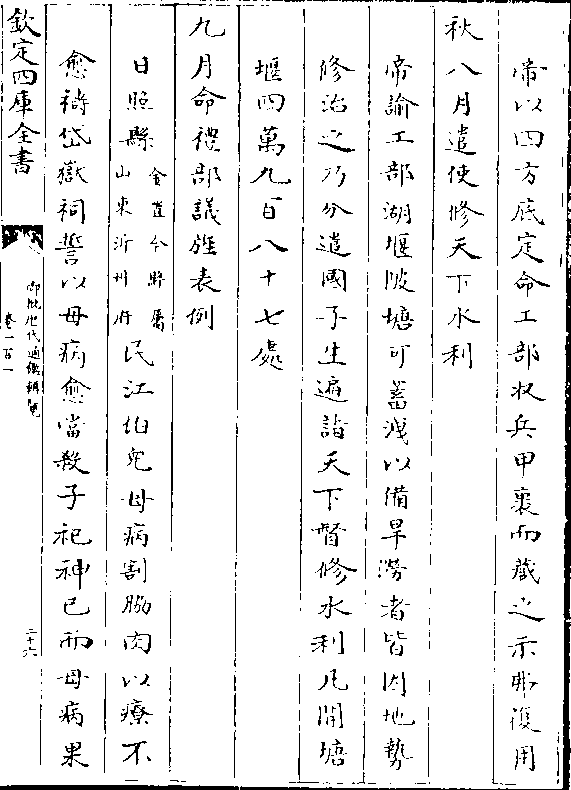 帝以四方底定命工部收兵甲裹而藏之示弗復用
秋八月遣使修天下水利
帝諭工部湖堰陂塘可蓄洩以備旱潦者皆因地勢
修治之乃分遣國子生遍詣天下督修水利凡開塘
堰四萬九百八十七處
九月命禮部議旌表例
日照縣金置今縣屬山東沂州府民江伯兒母病割脇肉以療不
愈禱岱嶽祠誓以母病愈當殺子祀神已而母病果
欽定四庫全書
御批歴代通鑑輯覽
卷一百一
二十六